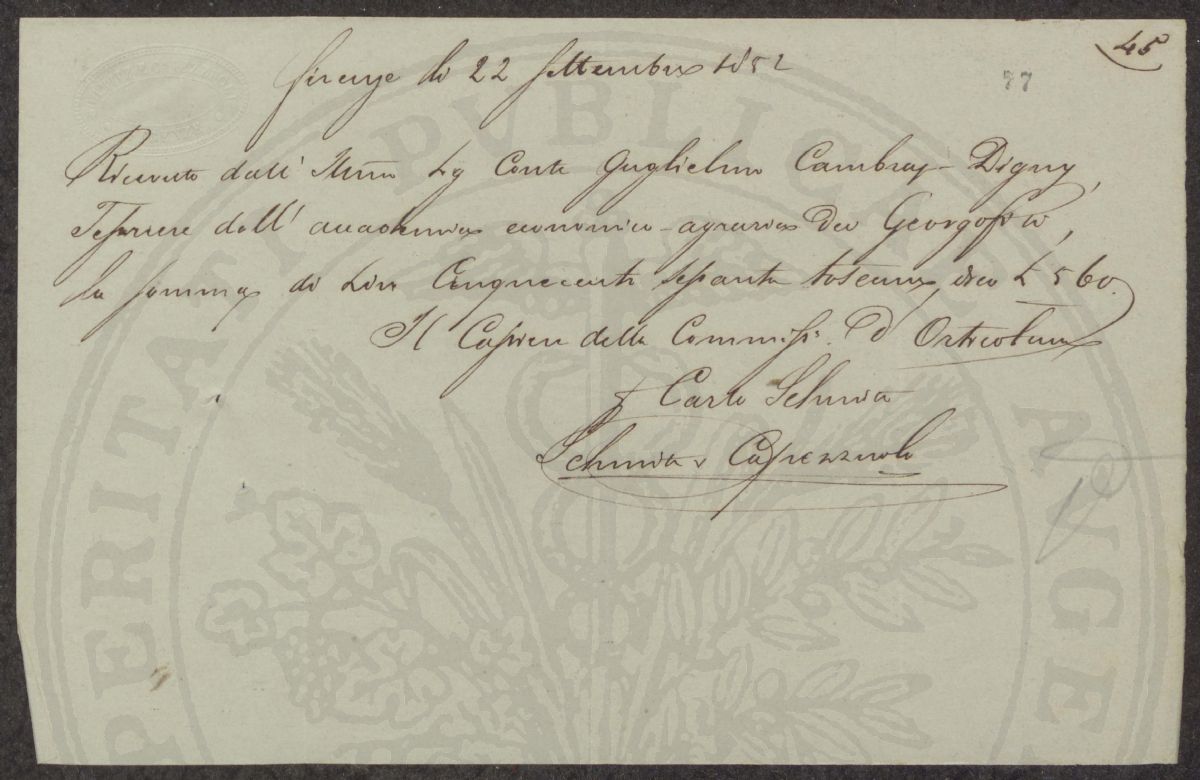 45
77
Firenze li 22 Settembre 1852
Ricevuto dall' Illmo Sig Conte Guglielmo Cambray-Digny,
Tesoriere dell' accademia economico-agraria dei Georgofili,
la somma di Lire Cinquecento sessanta toscane, dico £ 560.
Il Cassiere della Commiss. d' Orticoltura
Carlo Schmitz
PERITATI PUBLICAE AUGE